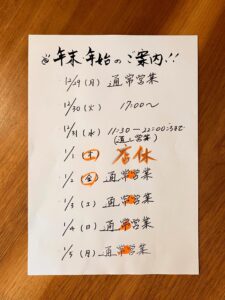 年末年始のご案内!!
12/29(月) 通常営業
12/30(火) 17:00〜
12/31(水) 11:30〜22:00
(通し営業)
1/1 店休
1/2 (金) 通常営業
1/3 (土) 通常営業
1/4 (日) 通常営業
1/5 (月) 通常営業